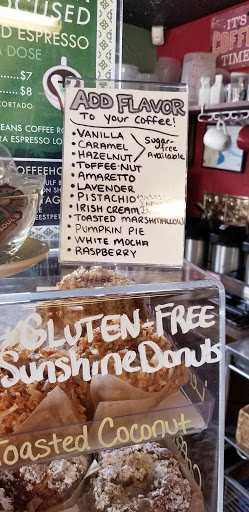 OCUSED
D ESPRESSO
A DOSE
$7
$8
CORTADO
EANS COFFEE RO
RA ESPRESSO LO
IT'S
COFFEE
TIME
ADD FLAVOR
To your Coffee!
• VANILLA
• CARAMEL
• HAZELNUT
Sugar-
free
Available
• TOFFEE NUT
• AMARETTO
• LAVENDER
• PISTACHIO
• IRISH CREAM
• TOASTED MARSHMALLOW
• PUMPKIN PIE
• WHITE MOCHA
• RASPBERRY
GLUTEN-FREE
Sunshine Donuts
Toasted Coconut